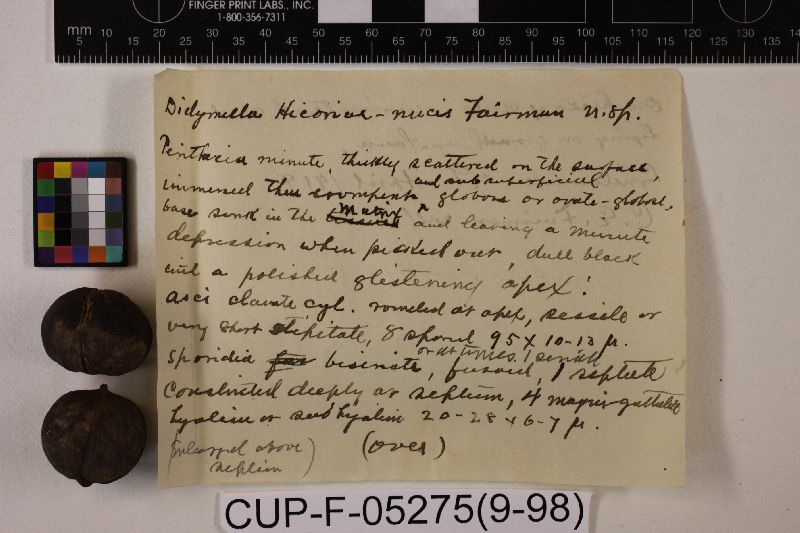 FINGER PRINT LABS., INC.
1-800-356-7311
mm 5 10 15 20 25 30 35 40 45 50 55 60 65 70 75 80 85 90 95 100 105 110 115 120 125 130 135
Didymella Hicoriae-nucis Fairman n. sp.
Perithecia minute, thickly scattered on the surface,
immersed then erumpent and sub superficial globose or ovate-globose,
base sunk in the matrix and leaving a minute
depression when picked out, dull black
and a polished glistening apex!
Asci clavate cyl. rounded at apex, sessile or
very short stipitate, 8 spored 95 x 10-13 µ.
Sporidia biseriate, or at times 1 seriate fusoid, 1 septate
constricted deeply at septum, 4 magni-guttulate
hyaline or sub hyaline 20-28 x 6-7 µ.
(enlarged above
septum)
(over)
CUP-F-05275(9-98)